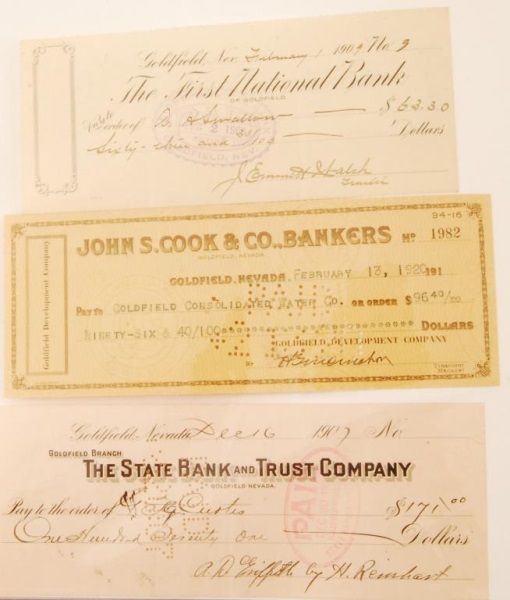 Goldfield, Nev. February 1 1909 No 3
The First National Bank
OF GOLDFIELD
Pay to the order of B A Swallow $63.30
Sixty-three and 30/100 Dollars
GOLDFIELD, NEV.
J. Emmett Walsh
Trustee
94-16
JOHN S. COOK & CO., BANKERS No 1982
GOLDFIELD, NEVADA
GOLDFIELD, NEVADA, FEBRUARY 13, 1920 191
PAY TO GOLDFIELD CONSOLIDATED WATER CO. OR ORDER $96 40/00
NINETY-SIX & 40/100 DOLLARS
GOLDFIELD DEVELOPMENT COMPANY
BY
Goldfield Development Company
Goldfield, Nevada, Dec 16 1907 No
GOLDFIELD BRANCH
THE STATE BANK AND TRUST COMPANY
GOLDFIELD NEVADA.
Pay to the order of Curtis $171.00
One Hundred Seventy one Dollars
PAID
A.D. Griffith by H. Reinhart